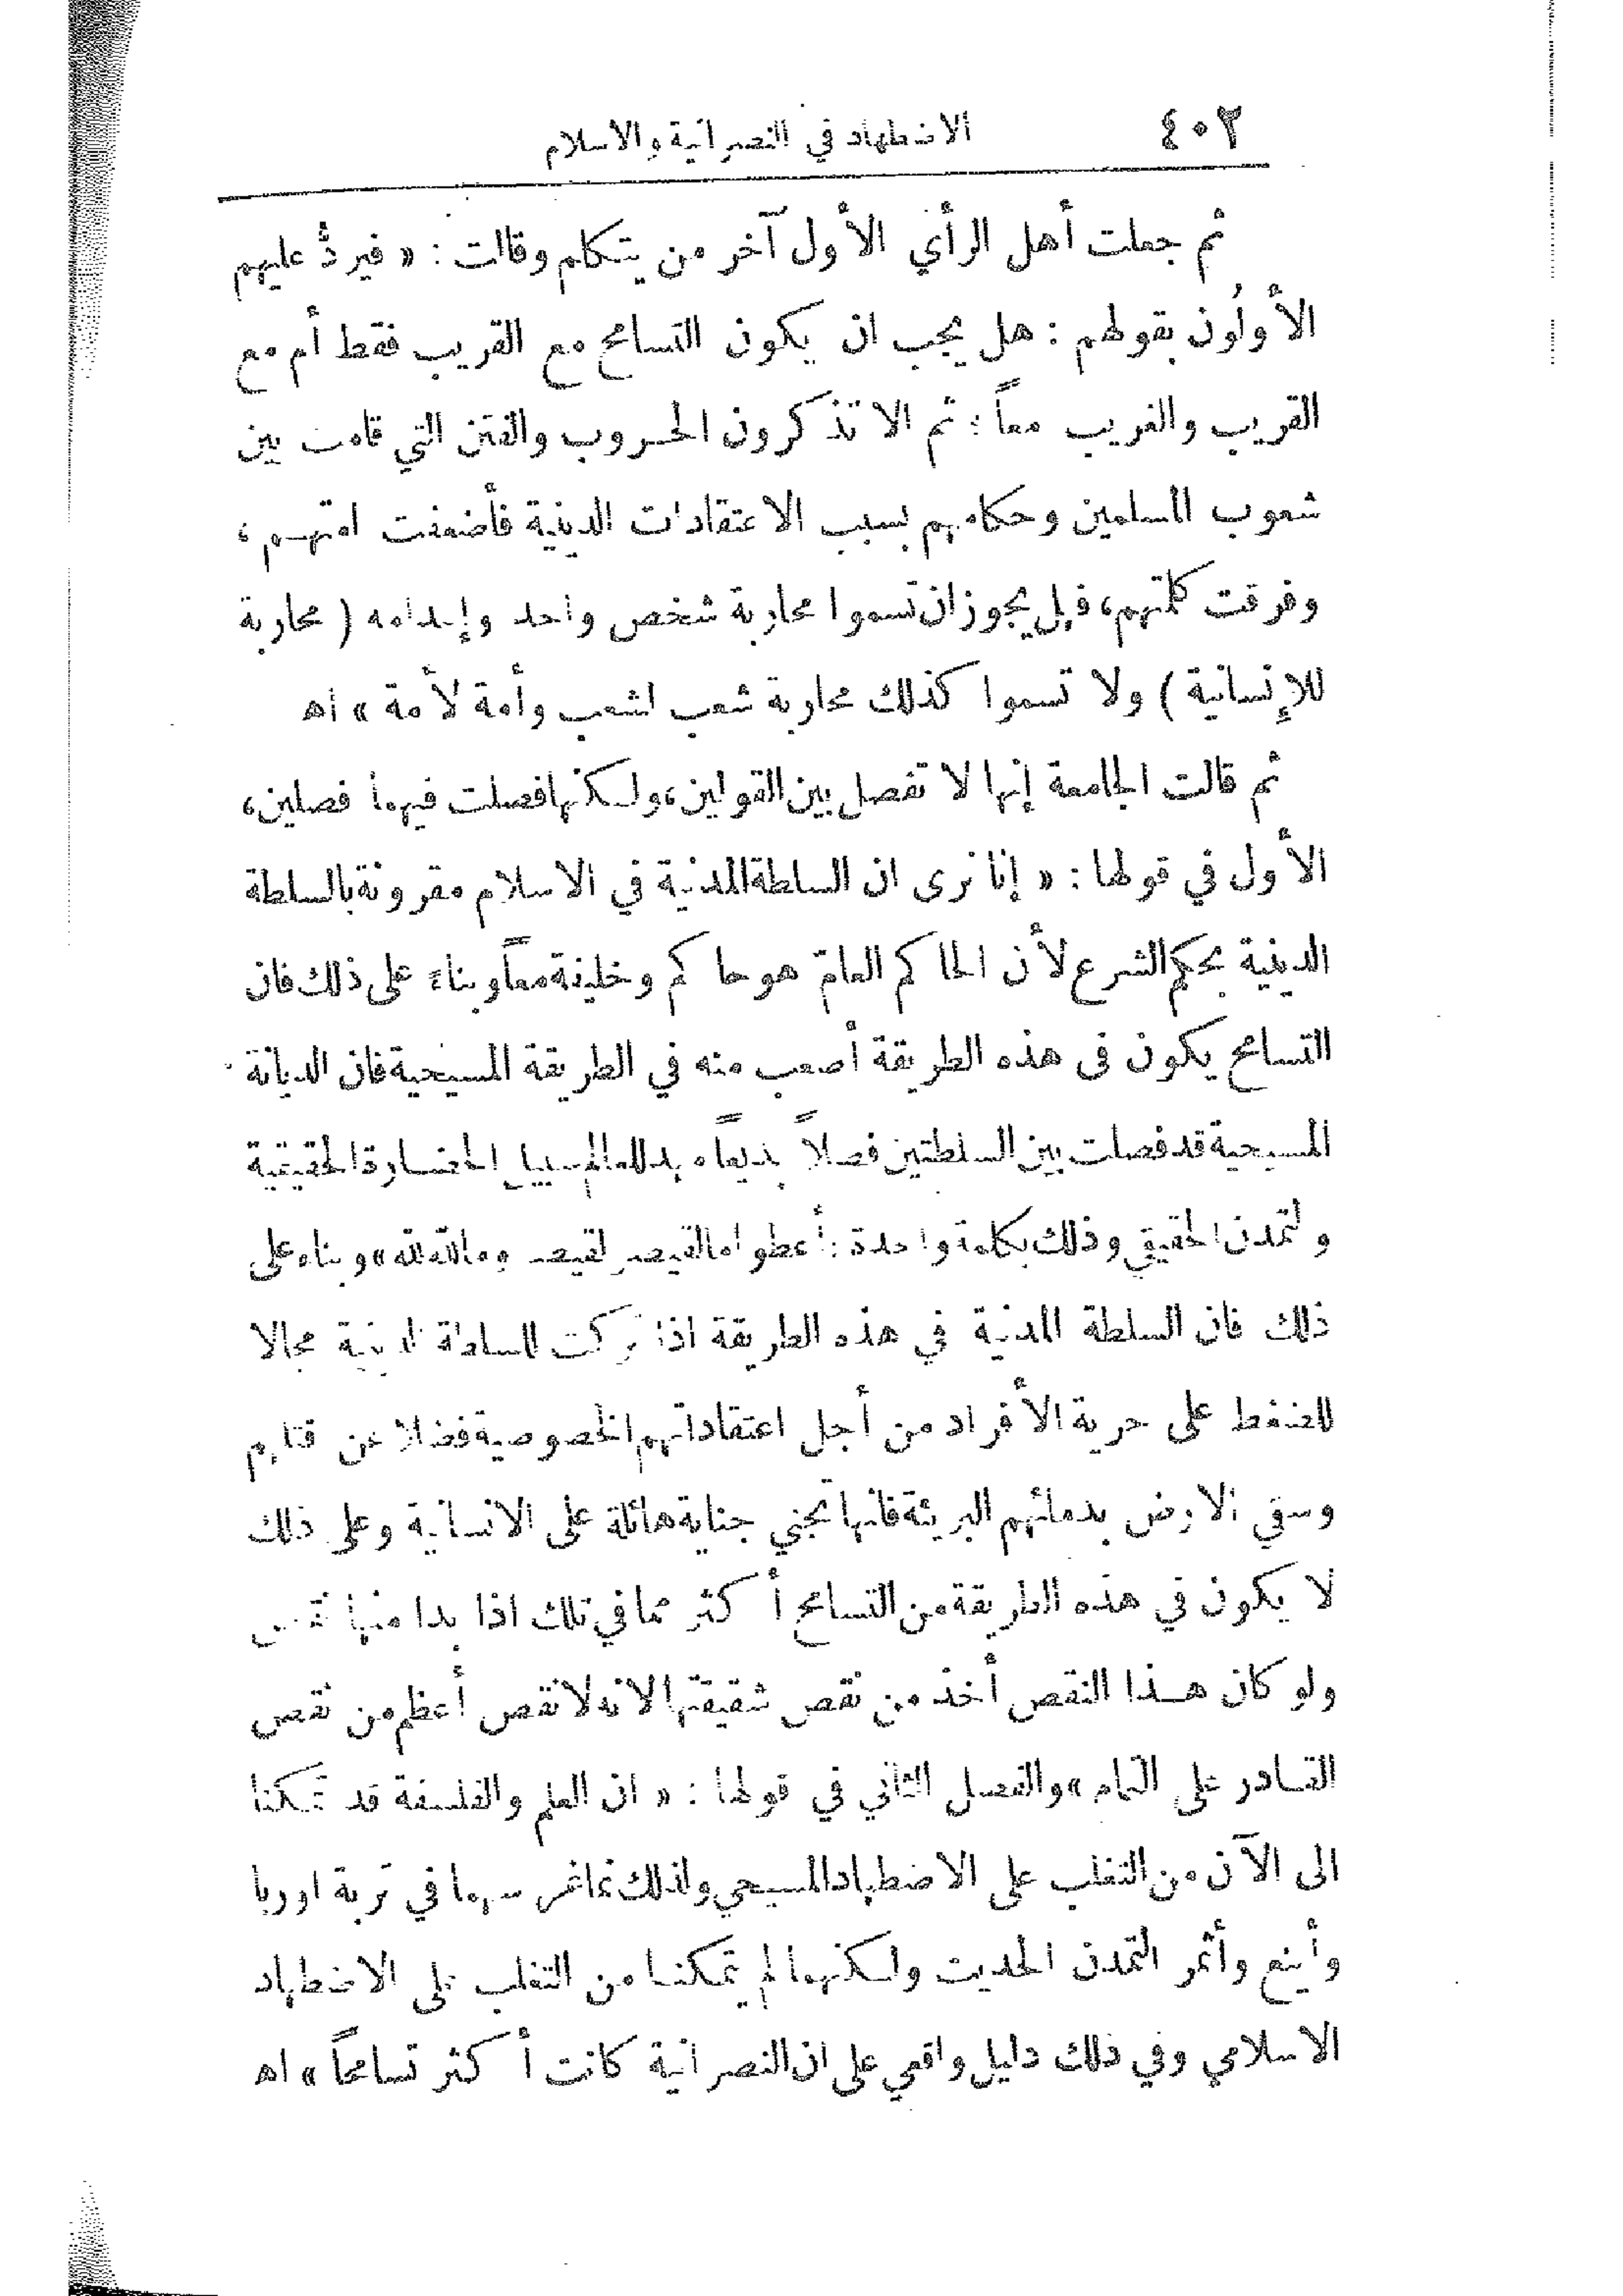 ٤٠٢ الاضطهاد في النصرانية والاسلام
ثم جعلت أهل الرأي الأول آخر من يتكلم وقالت : « فيردُّ عليهم
الأولُون بقولهم : هل يجب ان يكون التسامح مع القريب فقط أم مع
القريب والغريب معاً ؛ ثم الا تذكرون الحروب والفتن التي قامت بين
شعوب المسلمين وحكامهم بسبب الاعتقادات الدينية فأضعفت امتهم ،
وفرقت كلمتهم، فهل يجوز ان تسموا محاربة شخص واحد وإعدامه ( محاربة
للإنسانية ) ولا تسموا كذلك محاربة شعب لشعب وأمة لأمة » اه
ثم قالت الجامعة إنها لا تفصل بين القولين، ولكنها فصلت فيهما فصلين،
الأول في قولها : « إنا نرى ان السلطة المدنية في الاسلام مقرونة بالسلطة
الدينية بحكم الشرع لأن الحاكم العام هو حاكم وخليفة معاً وبناءً على ذلك فان
التسامح يكون فى هذه الطريقة أصعب منه في الطريقة المسيحية فان الديانة
المسيحية قد فصلت بين السلطتين فصلاً بديعاً مهد للعالم سبيل الحضارة الحقيقية
والتمدن الحقيقي وذلك بكلمة واحدة : أعطوا ما لقيصر لقيصر وما لله لله » وبناء على
ذلك فان السلطة المدنية في هذه الطريقة اذا تركت للسلطة الدينية مجالا
للضغط على حرية الأفراد من أجل اعتقاداتهم الخصوصية فضلا عن قتلهم
وسقي الارض بدمائهم البريئة فانها تجني جناية هائلة على الانسانية وعلى ذلك
لا يكون في هذه الطريقة من التسامح أكثر مما في تلك اذا بدا منها نقص
ولو كان هذا النقص أخذ من نقص شقيقتها لانه لا نقص أعظم من نقص
القادر على التمام » والفصل الثاني في قولها : « ان العلم والفلسفة قد تمكنا
الى الآن من التغلب على الاضطهاد المسيحي ولذلك نما غرسهما في تربة اوربا
وأينع وأثمر التمدن الحديث ولكنهما لم يتمكنا من التغلب على الاضطهاد
الاسلامي وفي ذلك دليل واقعي على ان النصرانية كانت أكثر تسامحاً » اه